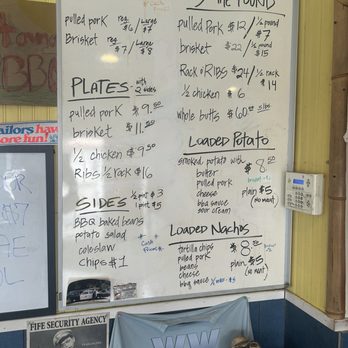 the POUND
pulled pork reg. $6 / Large $7
Brisket reg. $7 / Large $8
pulled pork $12 / ½ pound $7
brisket $22 / ½ pound $15
Rack o RIBS $24 / ½ rack $14
½ chicken $6
whole butts $60.00 8lbs
PLATES with 2 sides
pulled pork $9.50
brisket $11.50
½ chicken $9.50
Ribs ½ rack $16
SIDES ½ pt $3
1 pint $5
BBQ baked beans
potato salad
coleslaw
Chips $1
Cash
LOADED POTATO
smoked potato with $8.50
butter
pulled pork
cheese
bbq sauce
sour cream
plain $5
(no meat)
LOADED Nachos
tortilla chips $8.50
pulled pork
beans
cheese
bbq sauce
plain $5
(no meat)
BBQ
ailors have
ore fun!
FIFE SECURITY AGENCY